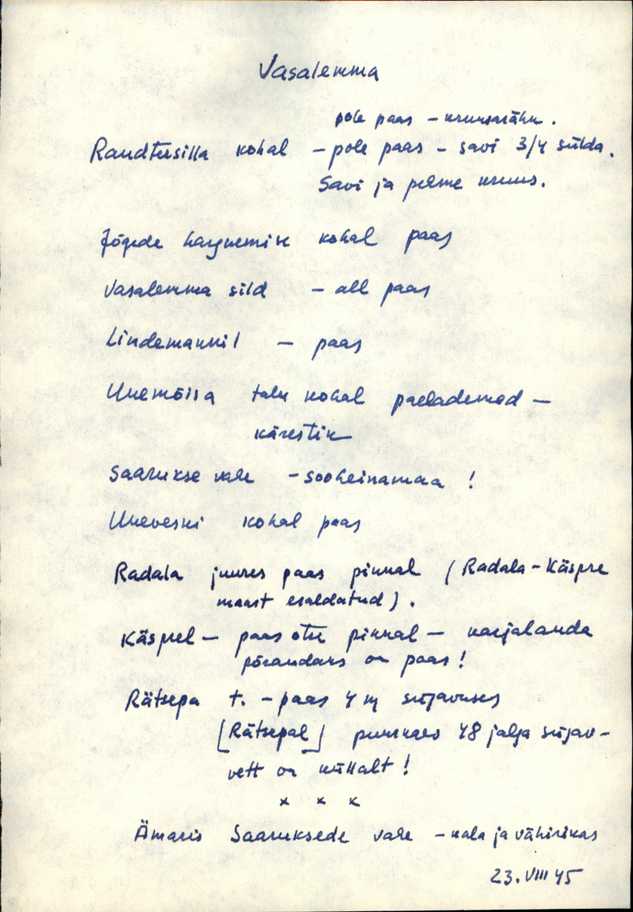 Vasalemma
pole paas – kruusarähk.
Raudtusilla kohal – pole paas – savi 3/4 sülda.
Savi ja peeme kruus.
Jõgede hargnemise kohal paas
Vasalemma sild – all paas
Lindemannil – paas
Unemõisa talu kohal paelademed –
kärestik
Saarukse vahe – sooheinamaa !
Uneveski kohal paas
Radala juures paas pinnal (Radala–Käspre
maast esaldatud).
Käsprel – paas otse pinnal – karjalauda
põrandaks on paas !
Rätsepa t. – paas 4 m sügavuses
[Rätsepal] puurkaev 48 jalga sügav –
vett on küllalt !
x x x
Ämaris Saaruksede vahe – kala ja vähirikas
23. VIII 45